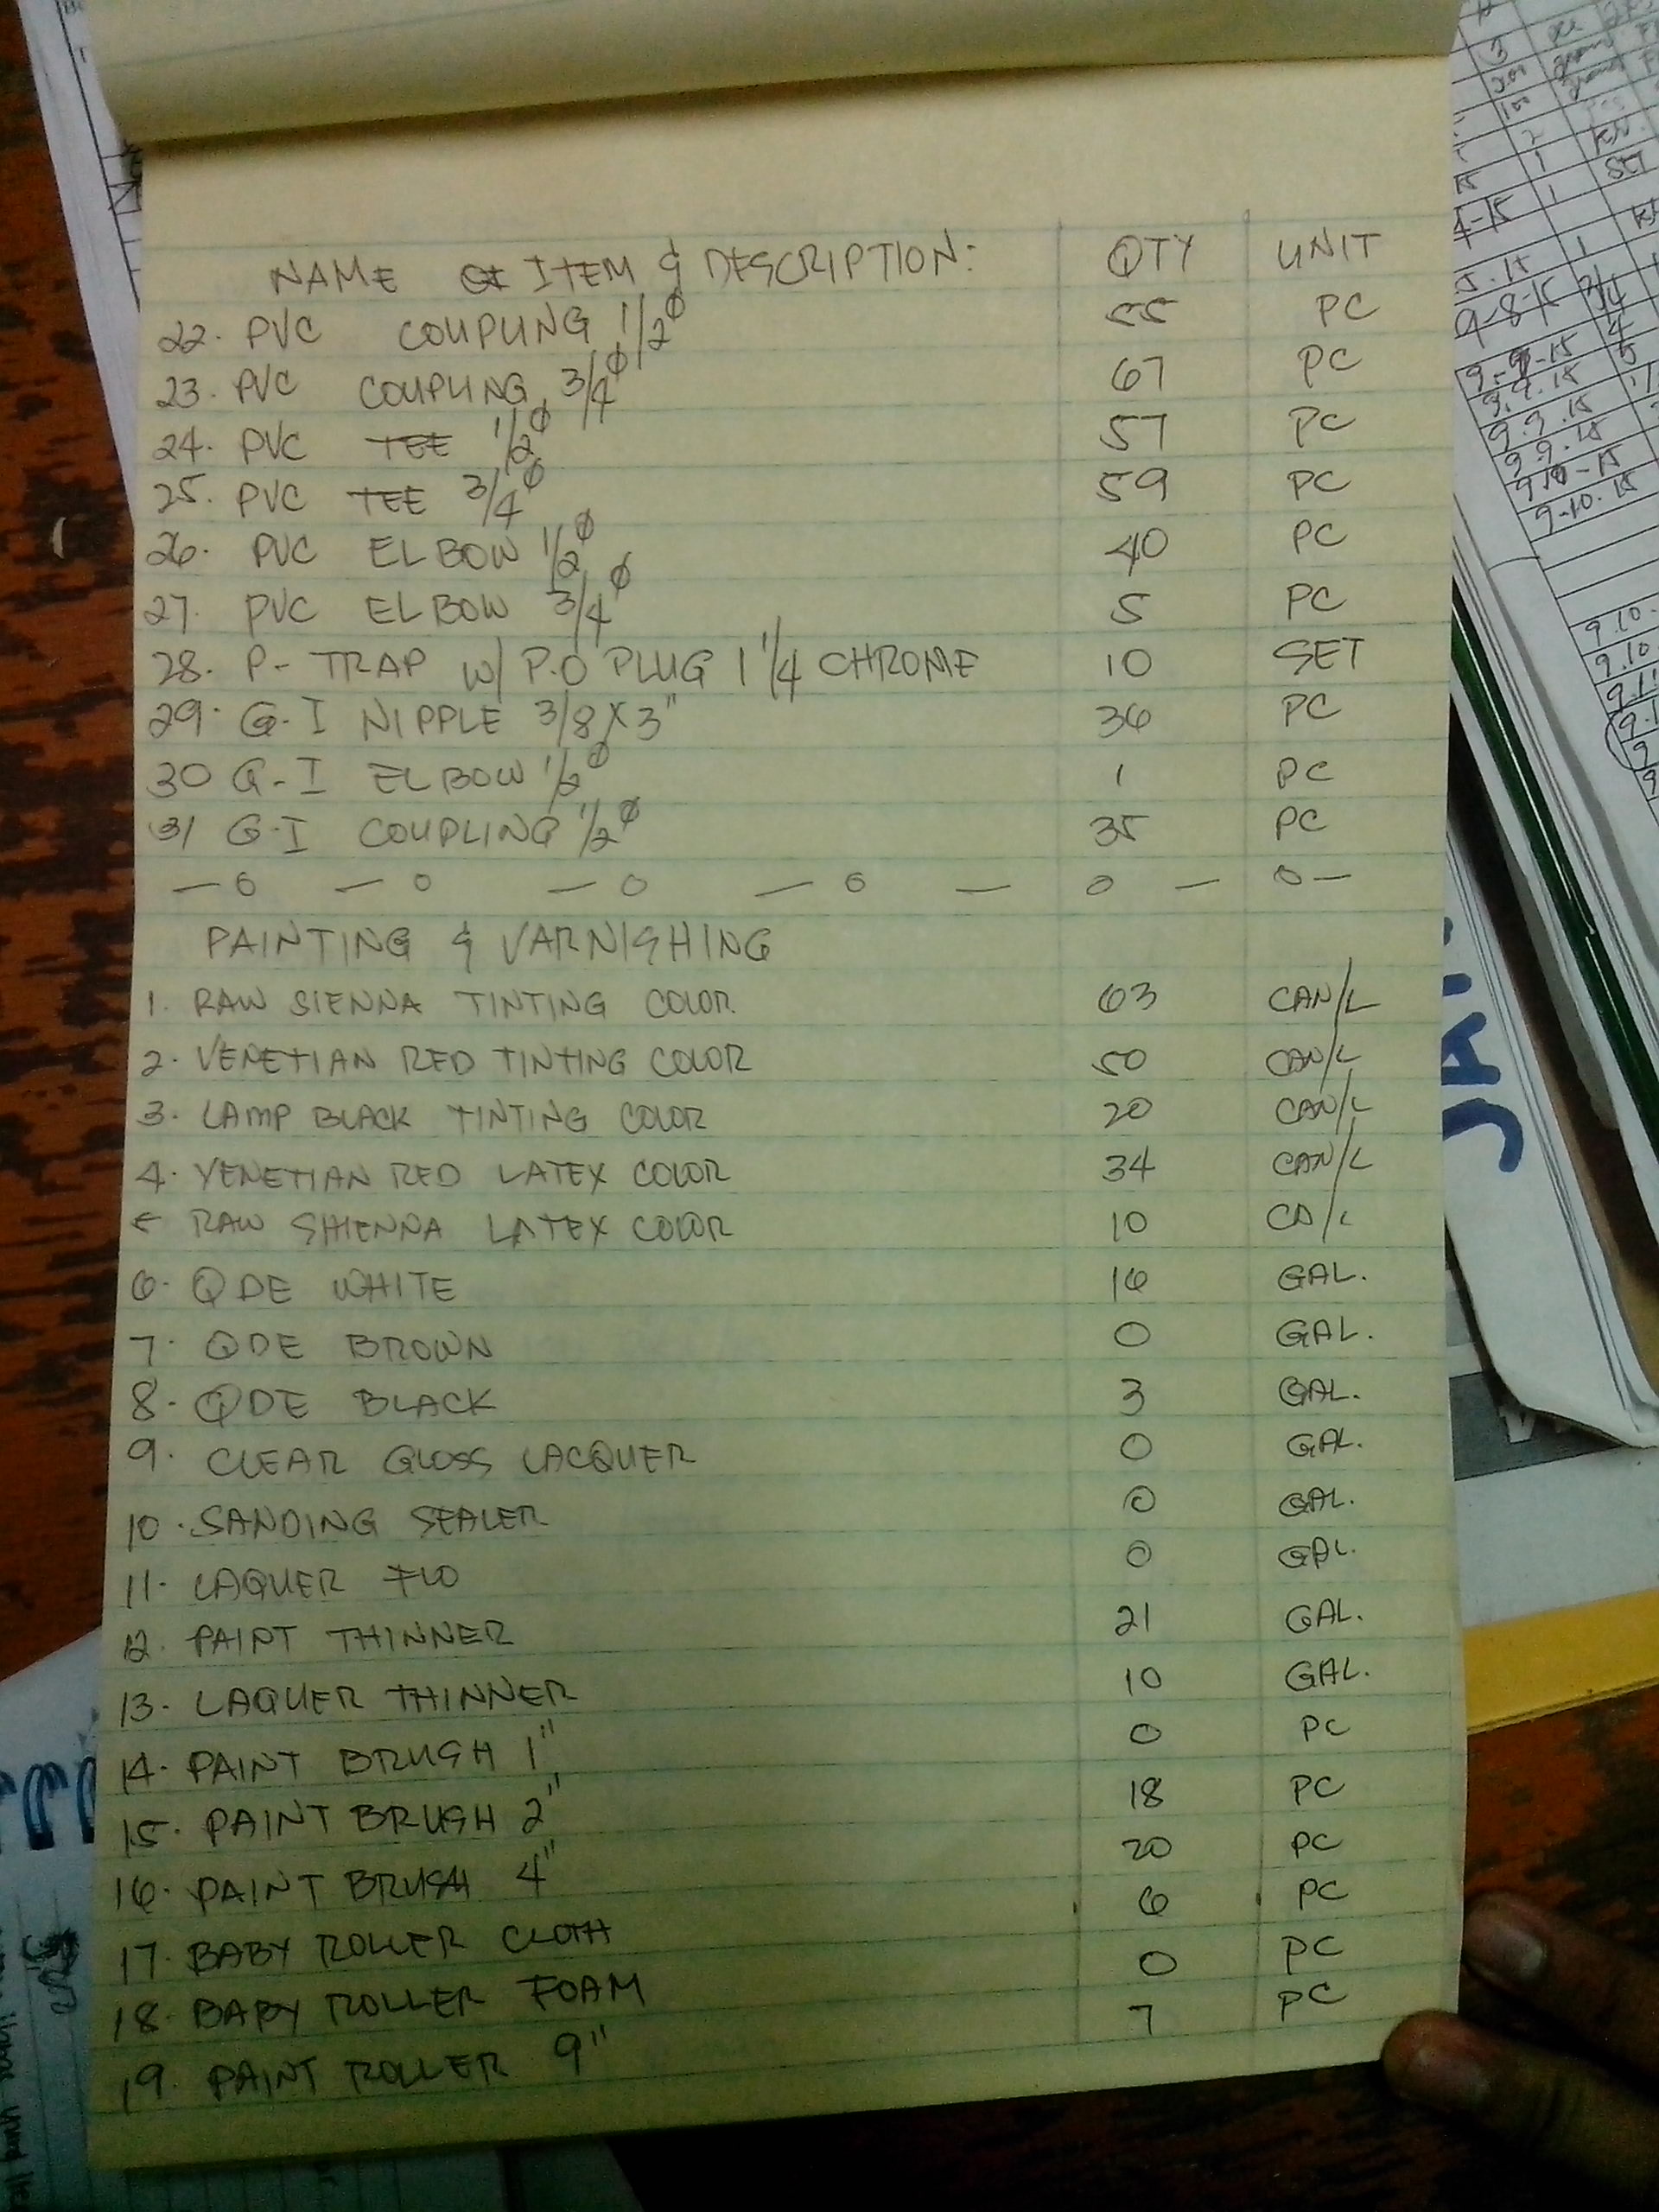 NAME OF ITEM & DESCRIPTION: QTY UNIT
22. PVC COUPLING 1/2 Ø 55 PC
23. PVC COUPLING 3/4 Ø 67 PC
24. PVC TEE 1/2 Ø 57 PC
25. PVC TEE 3/4 Ø 59 PC
26. PVC ELBOW 1/2 Ø 40 PC
27. PVC ELBOW 3/4 Ø 5 PC
28. P-TRAP W/ P.O PLUG 1 1/4 CHROME 10 SET
29. G-I NIPPLE 3/8 X 3" 36 PC
30 G-I ELBOW 1/2 Ø 1 PC
31 G-I COUPLING 1/2 Ø 35 PC
— 0 — 0 — 0 — 0 — 0 — 0 —
PAINTING & VARNISHING
1. RAW SIENNA TINTING COLOR 63 CAN/L
2. VENETIAN RED TINTING COLOR 50 CAN/L
3. LAMP BLACK TINTING COLOR 20 CAN/L
4. VENETIAN RED LATEX COLOR 34 CAN/L
5 RAW SHIENNA LATEX COLOR 10 CA/L
6. QDE WHITE 16 GAL.
7. QDE BROWN 0 GAL.
8. QDE BLACK 3 GAL.
9. CLEAR GLOSS LACQUER 0 GAL.
10. SANDING SEALER 0 GAL.
11. LAQUER FLO 0 GAL.
12. PAINT THINNER 21 GAL.
13. LAQUER THINNER 10 GAL.
14. PAINT BRUSH 1" 0 PC
15. PAINT BRUSH 2" 18 PC
16. PAINT BRUSH 4" 20 PC
17. BABY ROLLER CLOTH 6 PC
18. BABY ROLLER FOAM 0 PC
19. PAINT ROLLER 9" 7 PC